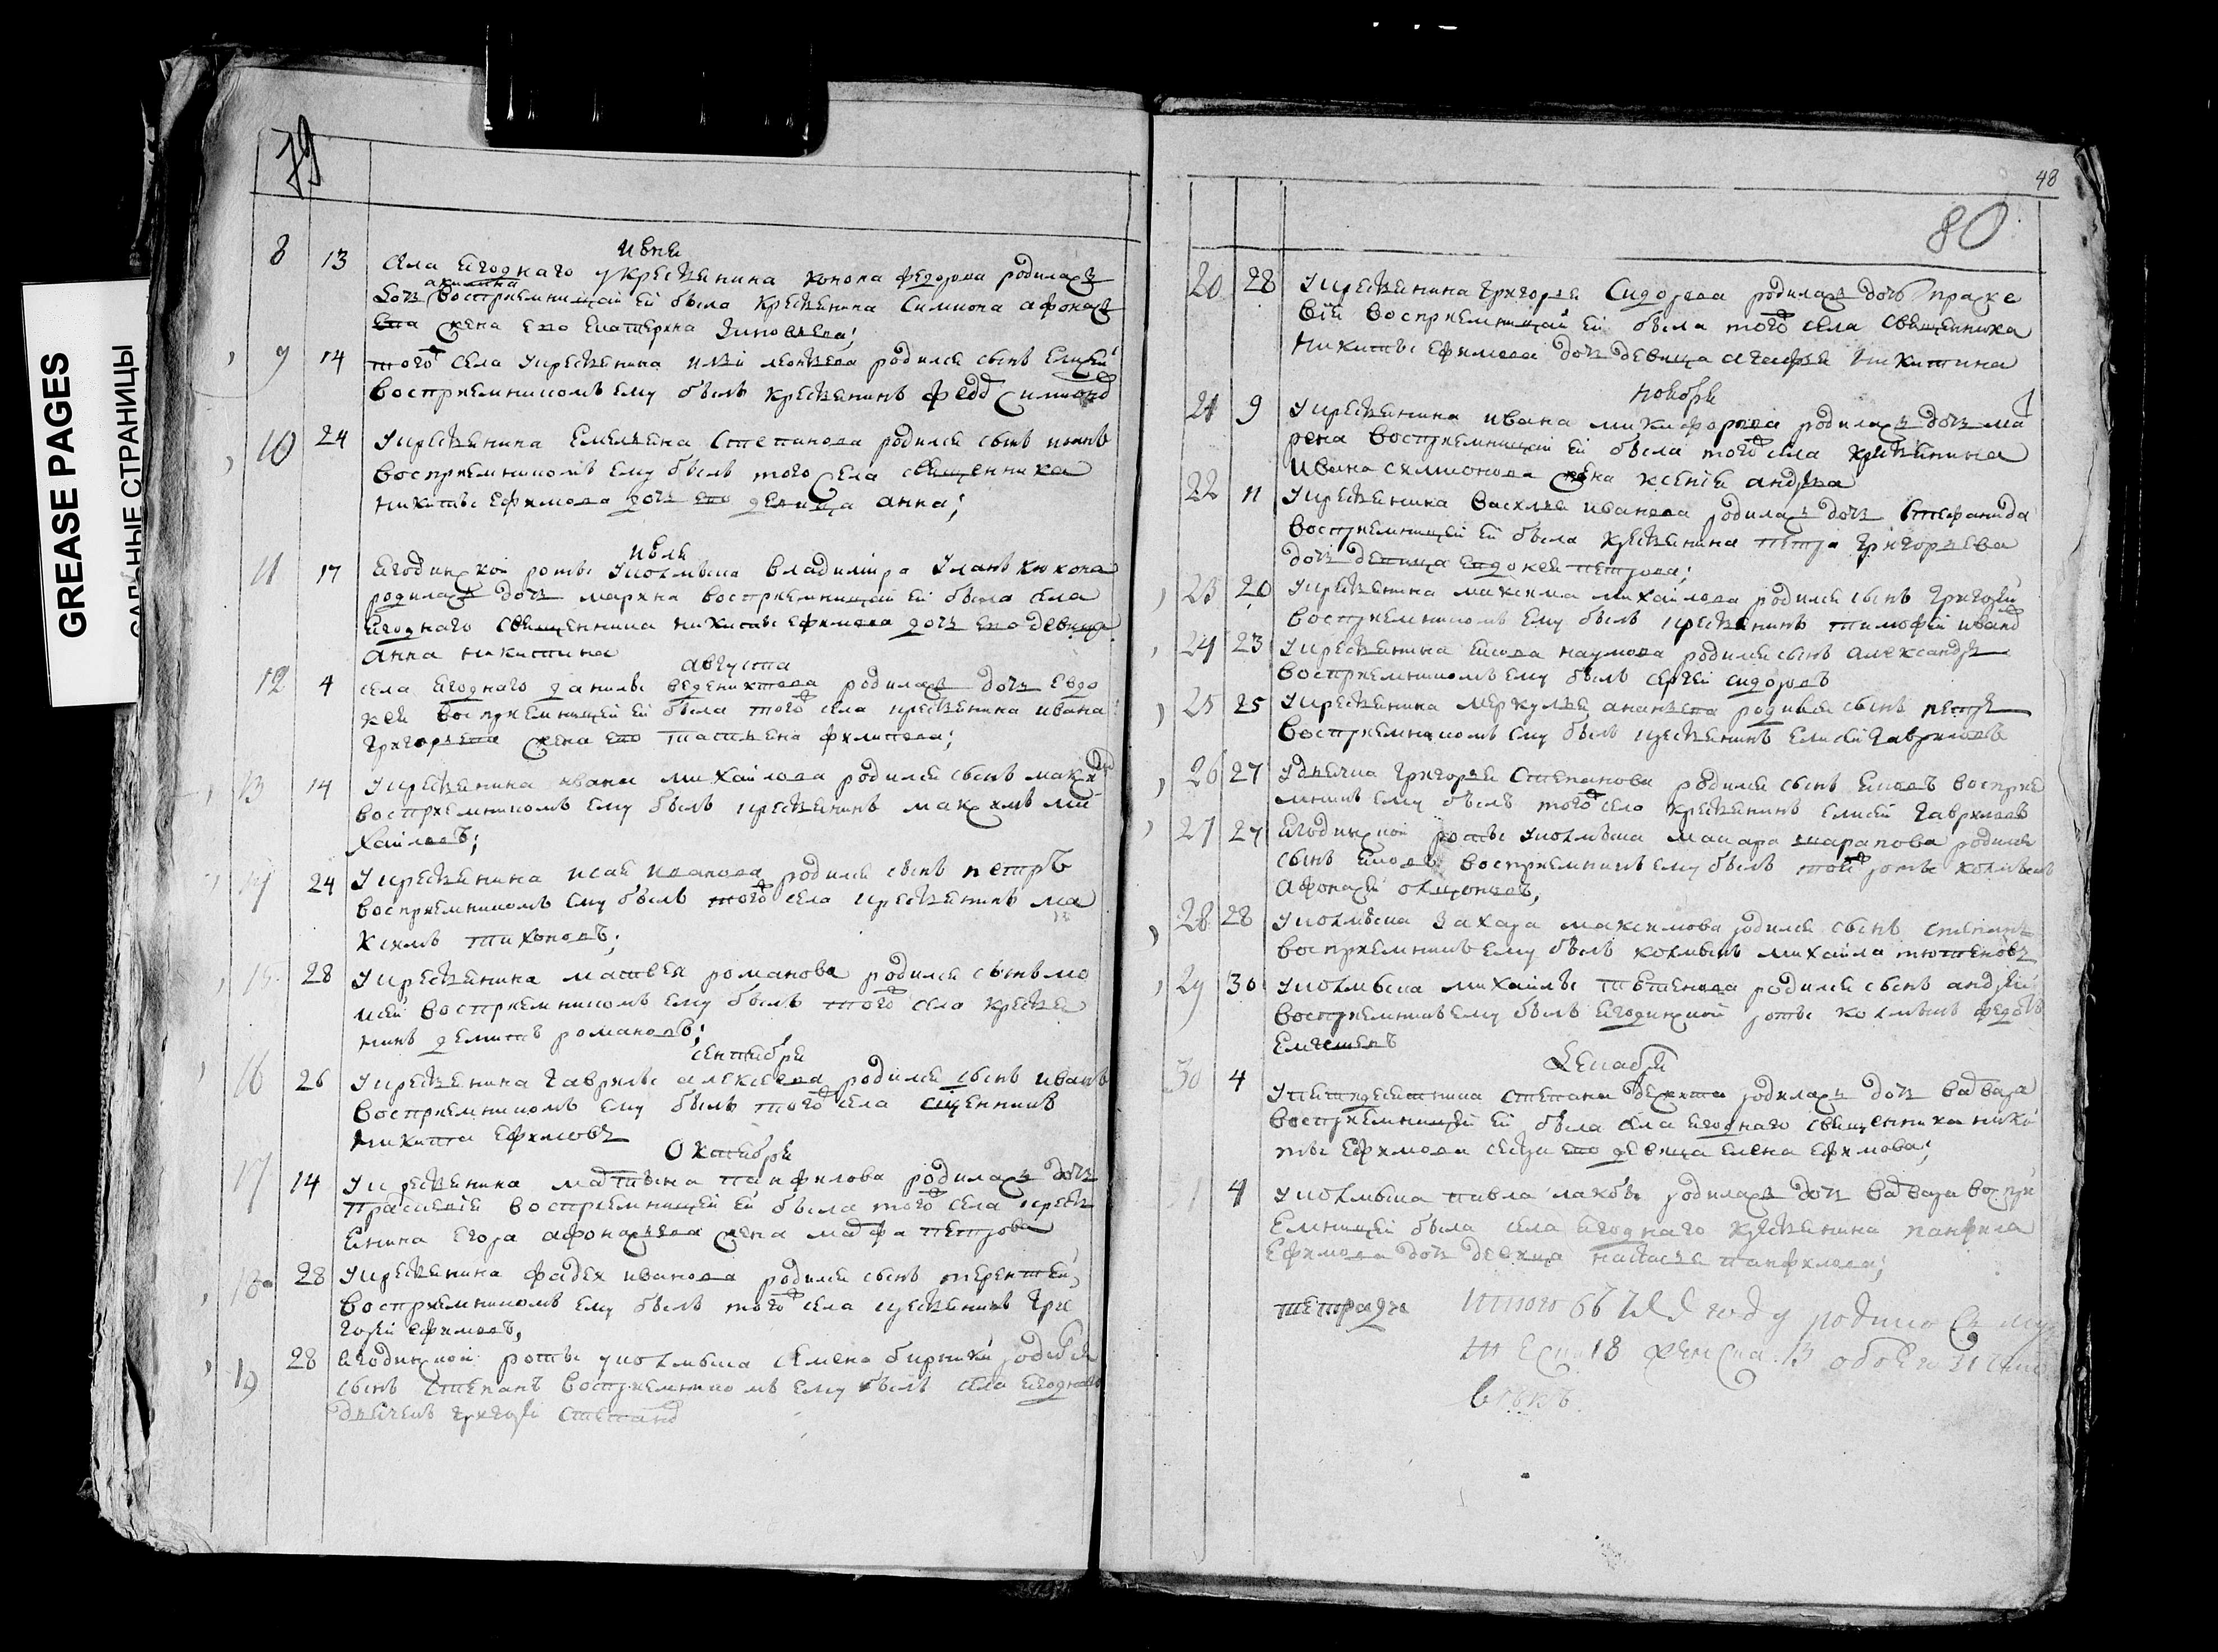 GREASE PAGES
79
Июня
8 13 села Ягоднаго у крестьянина конона федорова родилась
дочь акилина восприемницай ей была крестьянина Симиона афонась
ева жена ево екатерина
9 14 того села у крестьянина родился сынъ Елисей
восприемникомъ ему былъ крестьянинъ федо Симионо
10 24 У крестьянина Емельяна Степанова родился сынъ
восприемникомъ ему былъ того села священника
никиты Ефимова дочь ево девица анна;
Июля
11 17 Ягодинской роты у колмыка Владимира Уланъ кюкона
родилась дочь марина восприемницай ей была села
Ягоднаго священника никиты Ефимова дочь ево девица
анна никитина
августа
12 4 села Ягоднаго данилы веденихтова родилась дочь Евдо
кея восприемницей ей была того села крестьянина ивана
Григорьева жена ево татьяна филипова;
13 14 У крестьянина ивана михаилова родился сынъ
восприемникомъ ему былъ крестьянинъ максимъ ми
хаиловъ;
14 24 У крестьянина исая иванова родился сынъ петръ
восприемникомъ ему былъ того села крестьянинъ ма
ксимъ тихоновъ;
15 28 У крестьянина матвея романова родился сынъ мо
исей восприемникомъ ему былъ того села крестья
нинъ романовъ;
сентября
16 26 У крестьянина Гаврилы алексеева родился сынъ иванъ
восприемникомъ ему былъ того села сщенникъ
никита Ефимовъ
Октября
17 14 У крестьянина мартына панфилова родилась дочь
прасковия восприемницей ей была того села кресть
янина Егора афонасьева жена марфа петрова
18 28 У крестьянина фадея иванова родился сынъ терентей,
восприемникомъ ему былъ того села крестьянинъ Гри
горей ефимовъ,
19 28 Ягодинской роты у колмыка семена родился
сынъ Степанъ восприемникомъ ему былъ села Ягоднаго
дьячекъ григорей Степано
48
80
20 28 У крестьянина Григорья Сидорова родилась дочь праске
вия восприемницай ей была того села священника
никиты Ефимова дочь девица агафья никитина
ноября
21 9 У крестьянина ивана микифорова родилась дочь ма
рена восприемницай ей была того села крестьянина
ивана симионова жена ксения андреева
22 11 У крестьянина василья иванова родилась дочь Стефанида
восприемницей ей была крестьянина петра Григорьева
дочь девица евдокея петрова;
23 20 У крестьянина максима михаилова родился сынъ Григорей
восприемникомъ ему былъ крестьянинъ тимофей ивано
24 23 У крестьянина якова наумова родился сынъ александръ
восприемникомъ ему былъ сергей сидоровъ
25 25 У крестьянина меркулья ананьева родился сынъ петръ
восприемникомъ ему былъ крестьянинъ Елисей Гавриловъ
26 27 У дьячка Григорья Степанова родился сынъ яковъ восприе
мникъ ему былъ того села крестьянинъ елисей Гавриловъ
27 27 Ягодинской роты у колмыка макара шарапова родился
сынъ яковъ восприемникъ ему былъ той роты колмыкъ
афонасей
28 28 У колмыка Захара максимова родился сынъ степанъ
восприемникъ ему былъ колмыкъ михаила тютеневъ
29 30 У колмыка михаилы тютенева родился сынъ андрей
восприемникъ ему былъ Ягодинской роты колмыкъ федоръ
Декабря
30 4 У пятидесятника степана родилась дочь варвара
восприемницей ей была села Ягоднаго священника ники
ты Ефимова сестра ево девица елена ефимова;
4 У колмыка павла родилась дочь варвара воспри
емницей была села Ягоднаго крестьянина панфила
Ефимова дочь девица настасья панфилова;
тетради Итого въ году родилось му
жеска 18 женска 13 обоего 31